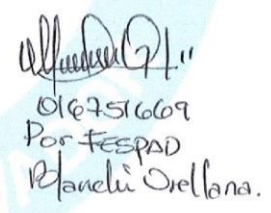 016751669
Por FESPAD
Blanchi Orellana.